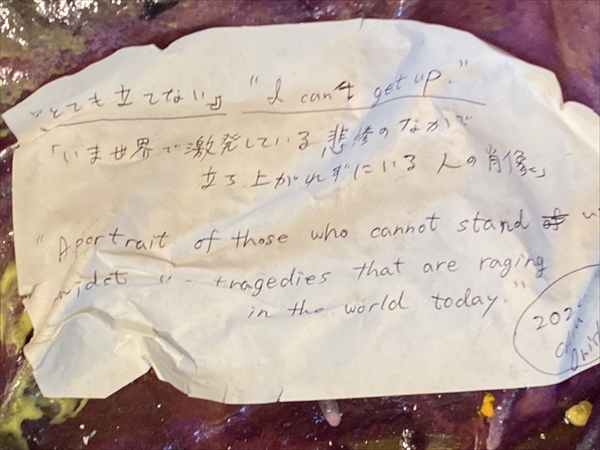 『とても立てない』 "I can't get up."
「いま世界で激発している悲惨のなかで
立ち上がれずにいる人の肖像」
"A portrait of those who cannot stand
midst tragedies that are raging
in the world today."